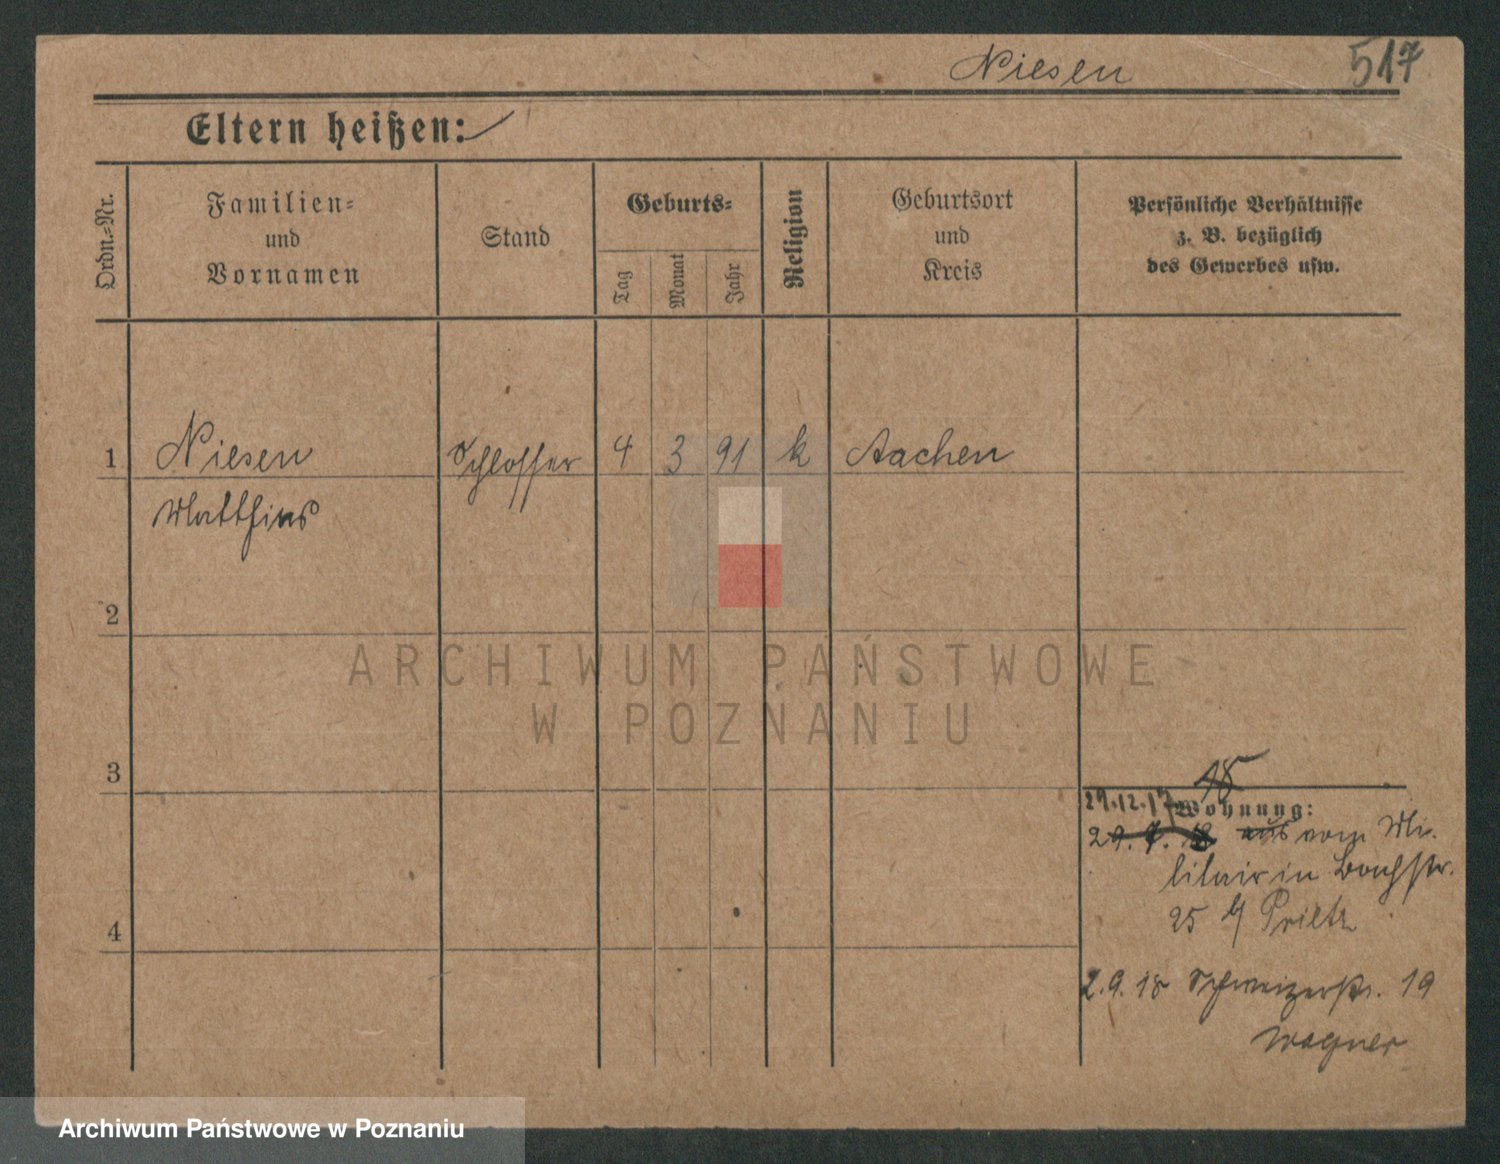 Niesen 517
Eltern heißen:
Ordn.-Nr.
Familien-
und
Vornamen
Stand
Geburts-
Tag
Monat
Jahr
Religion
Geburtsort
und
Kreis
Persönliche Verhältnisse
z. B. bezüglich
des Gewerbes usw.
1 Niesen Schlosser 4 3 91 k Aachen
Matthias
2
3
4
18
29.12.17 Wohnung:
29. 7. 18 aus vom Mi-
litair in Bachstr.
25 b/
2.9.18 Schweizerstr. 19
Wagner
ARCHIWUM PAŃSTWOWE
W POZNANIU
Archiwum Państwowe w Poznaniu